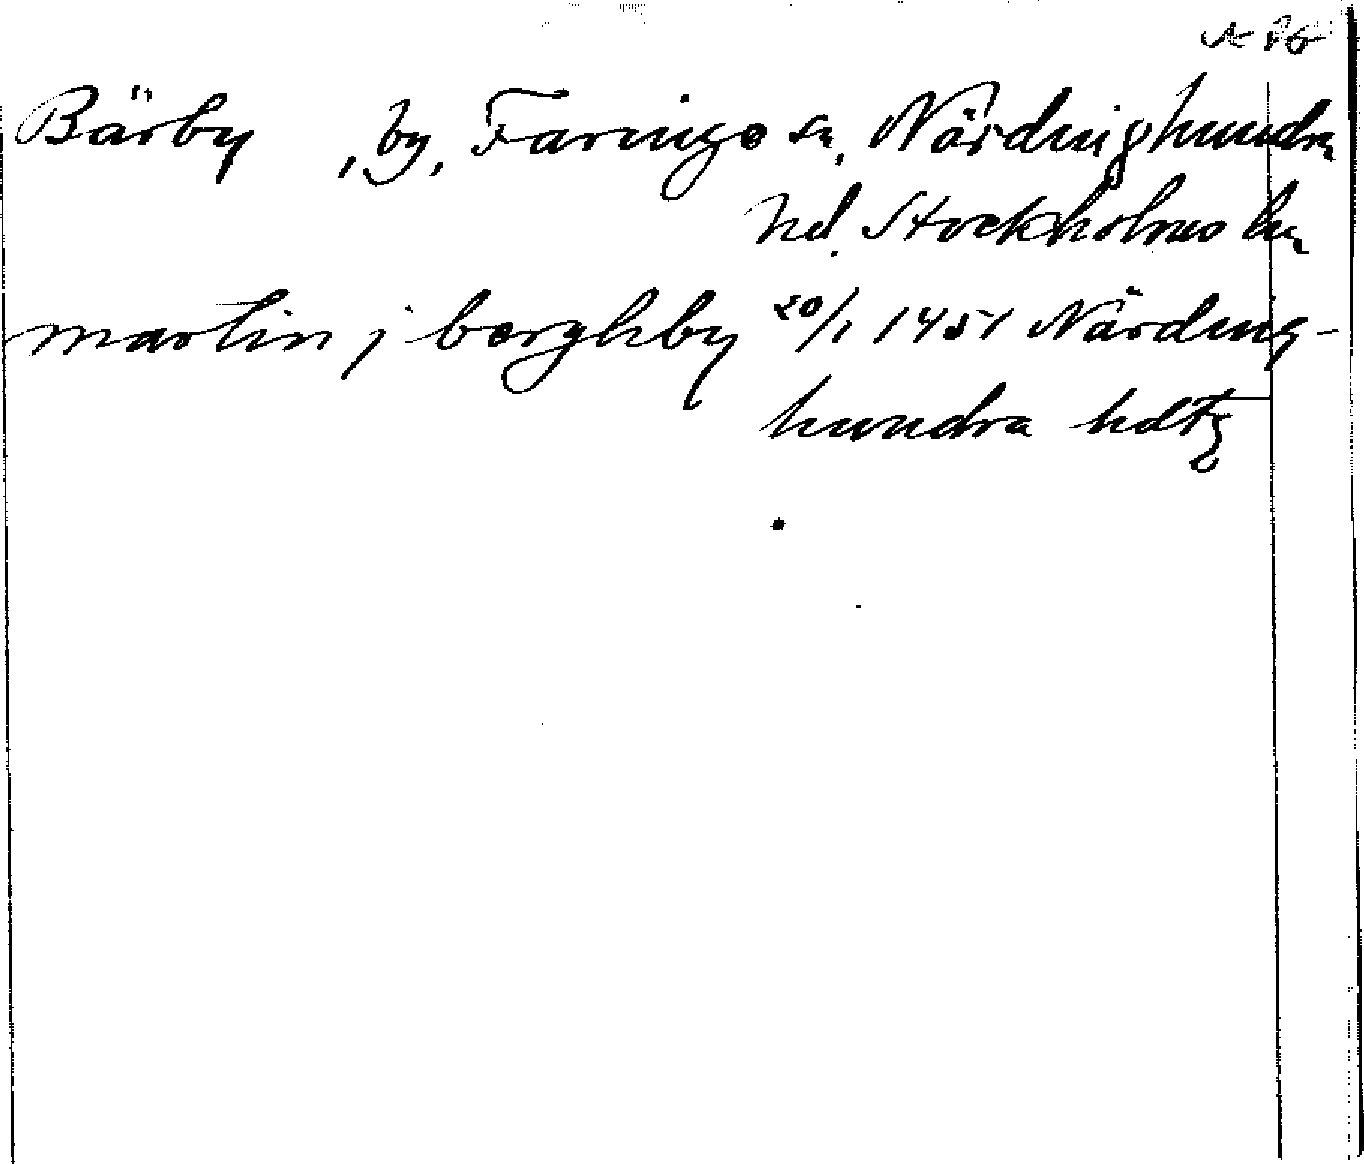 Bärby , by, Faringe sn, Närdinghundra
hd. Stockholms län
martin j berghby 20/1 1451 Närding-
hundra hdtg